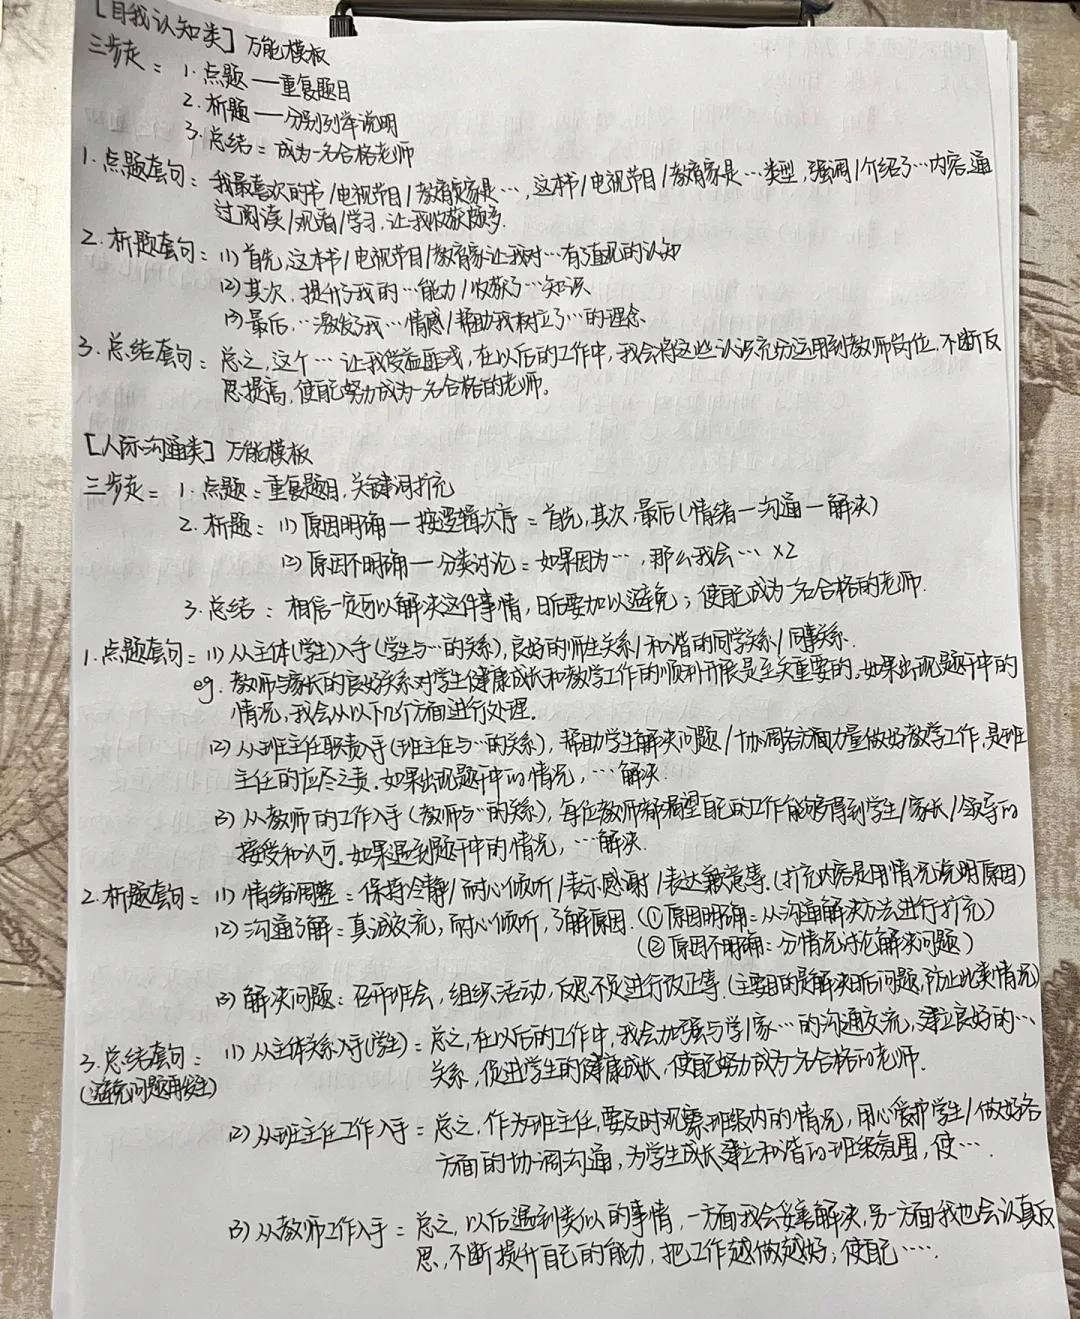 [自我认知类] 万能模板
三步走：1. 点题 — 重复题目
2. 析题 — 分别列举说明
3. 总结：成为一名合格老师
1. 点题套句：我最喜欢的书/电视节目/教育家是…，这本书/电视节目/教育家是…类型，强调/介绍了…内容，通
过阅读/观看/学习，让我收获颇多.
2. 析题套句：(1) 首先，这本书/电视节目/教育家让我对…有了直观的认知
(2) 其次，提升了我的…能力/收获了…知识
(3) 最后，…激发了我…情感/帮助我树立了…的理念.
3. 总结套句：总之，这个…让我受益匪浅，在以后的工作中，我会将这些认识充分运用到教师岗位，不断反
思提高，使自己努力成为一名合格的老师。
[人际沟通类] 万能模板
三步走：1. 点题：重复题目，关键词扩充
2. 析题：(1) 原因明确 — 按逻辑次序：首先，其次，最后 (情绪 — 沟通 — 解决)
(2) 原因不明确 — 分类讨论：如果因为…，那么我会… ×2
3. 总结：相信一定可以解决这件事情，日后要加以避免；使自己成为一名合格的老师.
1. 点题套句：(1) 从主体(学生)入手(学生与…的关系)，良好的师生关系/和谐的同学关系/同事关系.
eg. 教师与家长的良好关系对学生健康成长和教学工作的顺利开展是至关重要的，如果出现题干中的
情况，我会从以下几个方面进行处理。
(2) 从班主任职责入手(班主任与…的关系)，帮助学生解决问题/协调各方面力量做好教学工作，是班
主任的应尽之责，如果出现题干中的情况，…解决.
(3) 从教师的工作入手(教师与…的关系)，每位教师都希望自己的工作能够得到学生/家长/领导的
接受和认可，如果遇到题干中的情况，…解决.
2. 析题套句：(1) 情绪调整：保持冷静/耐心倾听/表示感谢/表达歉意等.(扩充内容是用情况说明原因)
(2) 沟通了解：真诚交流，耐心倾听，了解原因.(① 原因明确：从沟通解决方法进行扩充)
(② 原因不明确：分情况讨论解决问题)
(3) 解决问题：召开班会，组织活动，反思不足进行改正等.(主要目的是解决日后问题，防止此类情况)
3. 总结套句：(1) 从主体关系入手(学生)：总之，在以后的工作中，我会加强与学/家…的沟通交流，建立良好的…
(避免问题再发生)
关系，促进学生的健康成长，使自己努力成为一名合格的老师.
(2) 从班主任工作入手：总之，作为班主任，要及时观察班级内的情况，用心爱护学生/做好各
方面的协调沟通，为学生成长建立和谐的班级氛围，使….
(3) 从教师工作入手：总之，以后遇到类似的事情，一方面我会妥善解决，另一方面我也会认真反
思，不断提升自己的能力，把工作越做越好；使自己….